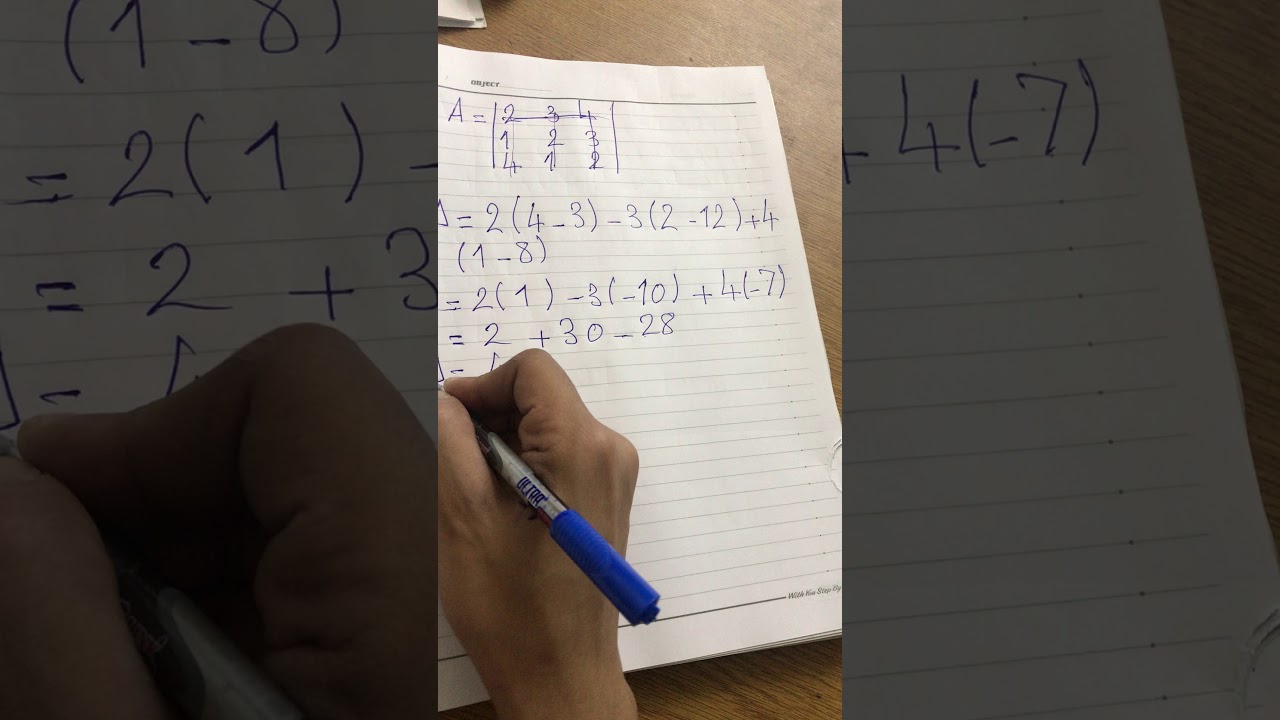 OBJECT
A = | 2 3 4 |
| 1 2 3 |
| 4 1 2 |
Δ = 2(4-3) - 3(2-12) + 4
(1-8)
= 2(1) - 3(-10) + 4(-7)
= 2 + 30 - 28
Δ =
ULTRA
With You Step By